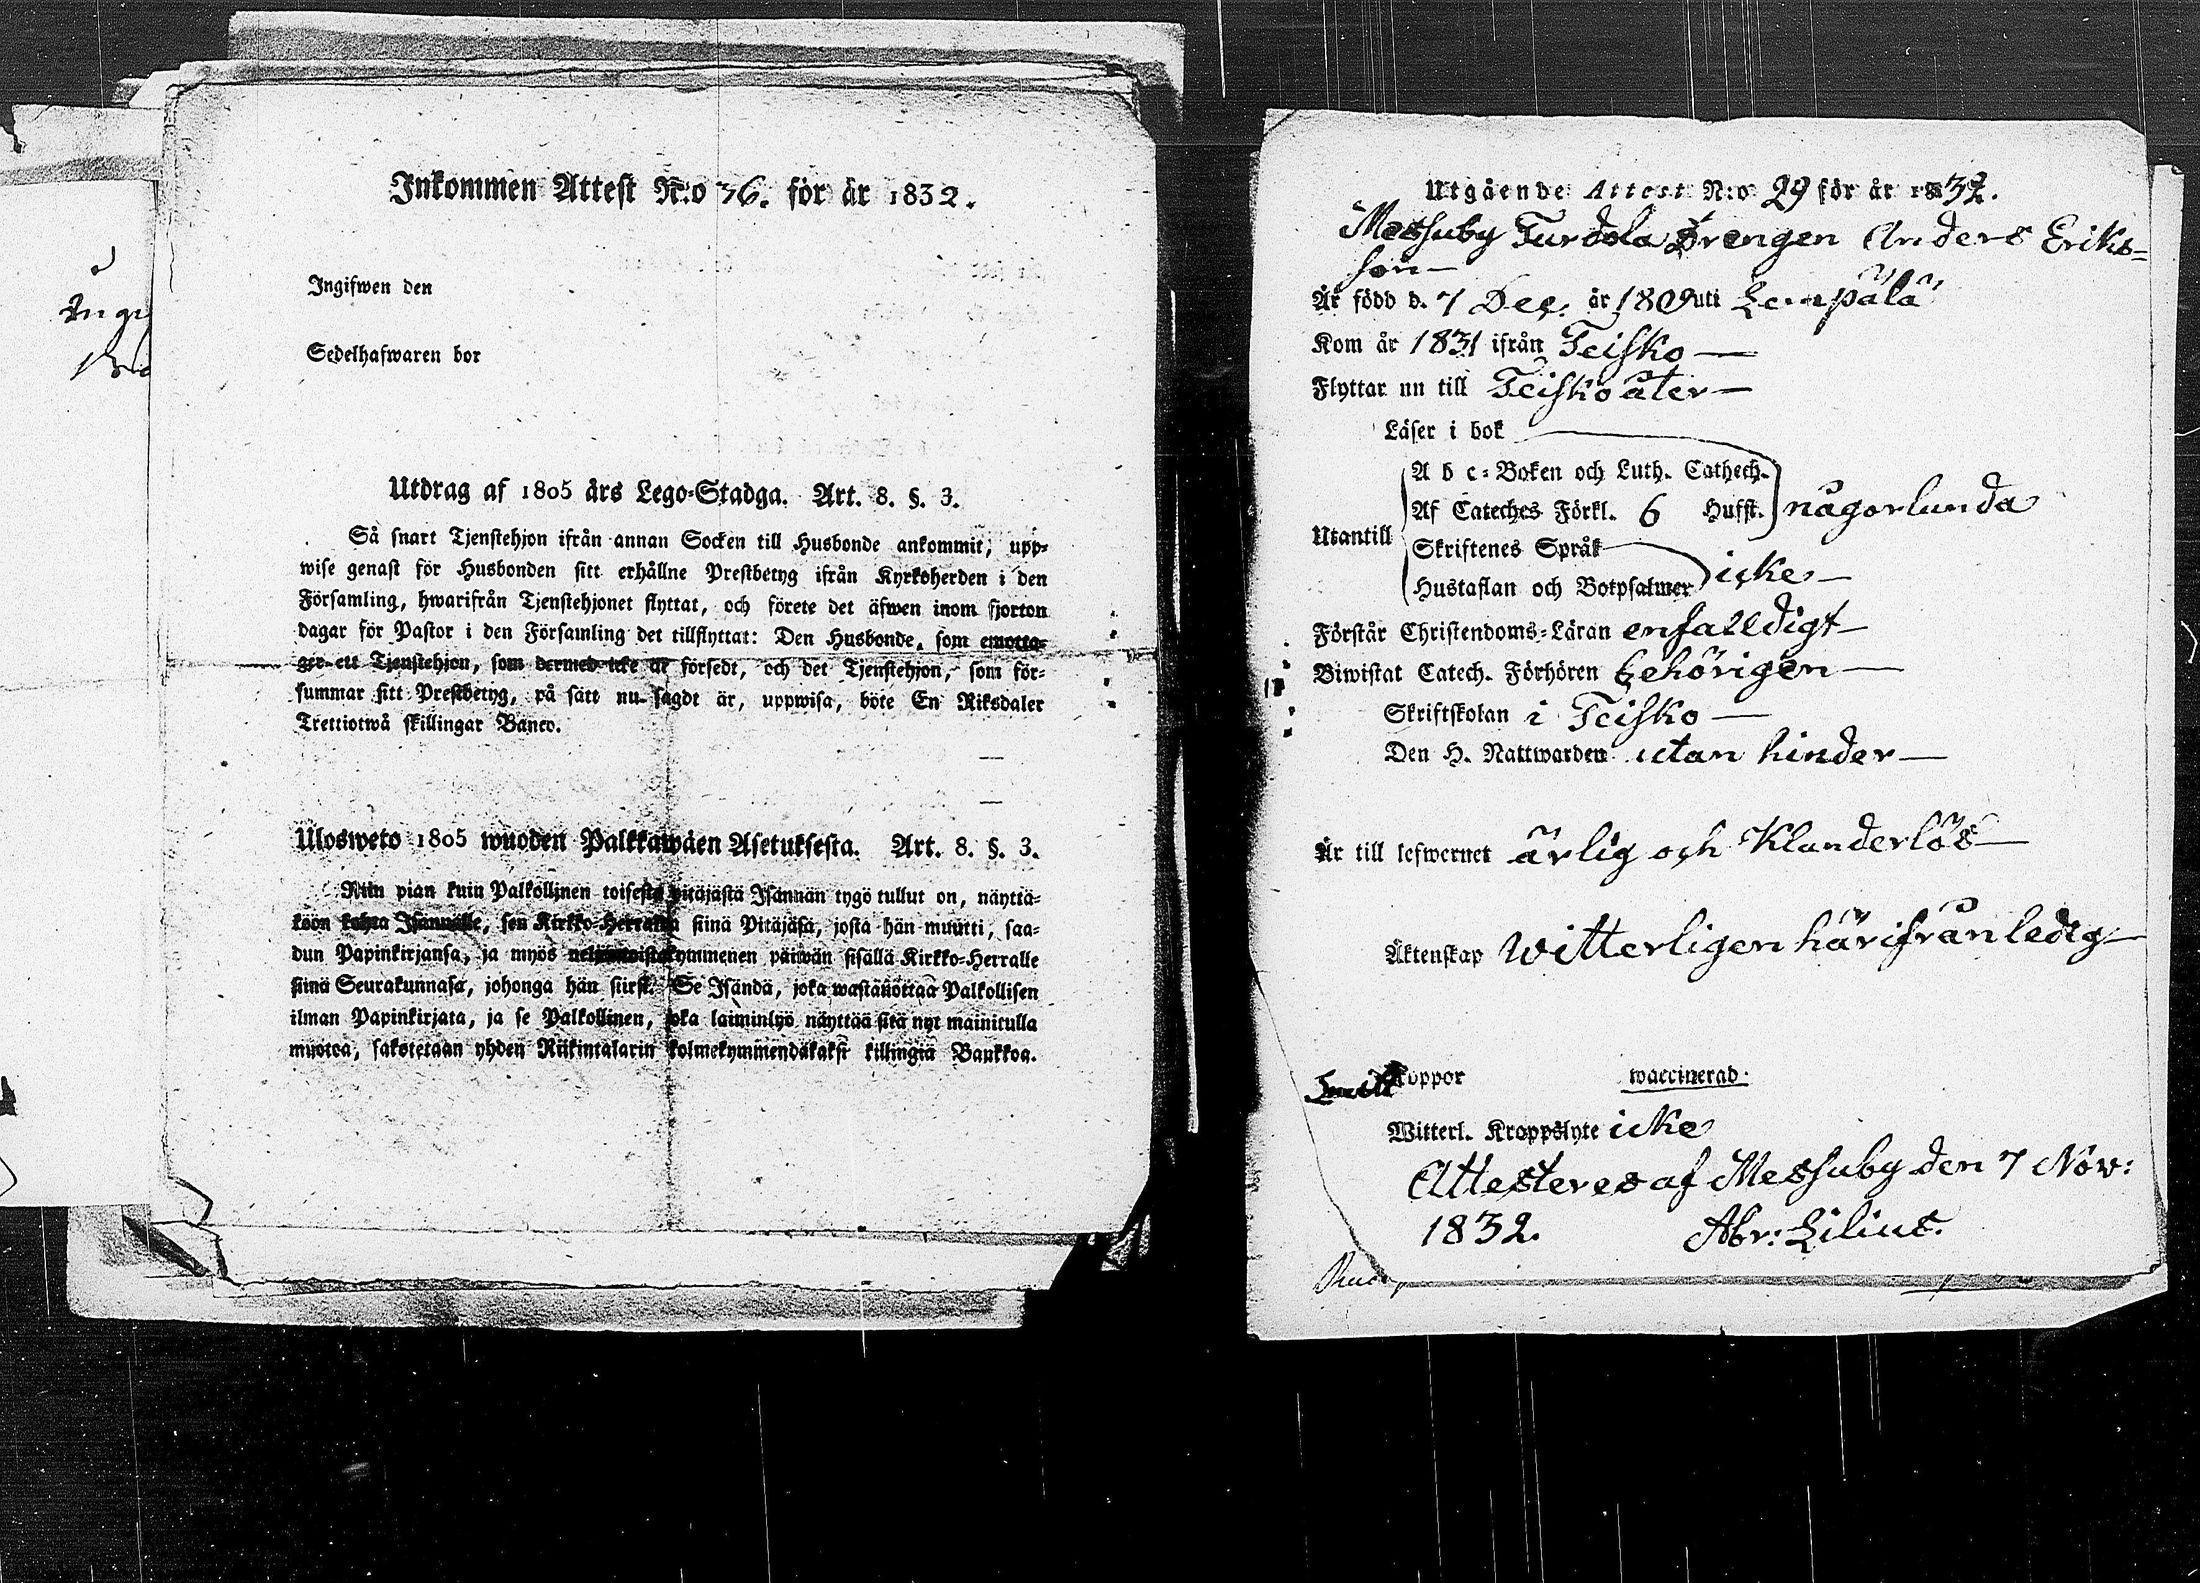 Inkommen Attest N:o 36. för år 1832.
Ingifwen den
Sedelhafwaren bor
Utdrag af 1805 års Lego-Stadga. Art. 8. §. 3.
Så snart Tjenstehjon ifrån annan Socken till Husbonde ankommit, upp-
wise genast för Husbonden sitt erhållne Prestbetyg ifrån Kyrkoherden i den
Församling, hwarifrån Tjenstehjonet flyttat, och förete det äfwen inom fjorton
dagar för Pastor i den Församling det tillflyttat: Den Husbonde, som emotta-
ger ett Tjenstehjon, som dermed icke är försedt, och det Tjenstehjon, som för-
summar sitt Prestbetyg, på sätt nu sagdt är, uppwisa, böte En Riksdaler
Trettiotwå skillingar Banco.
Ulosweto 1805 wuoden Palkkawäen Asetuksesta. Art. 8. §. 3.
Niin pian kuin Palkollinen toisesta pitäjästä Isännän tygö tullut on, näyttä-
köön kohta Isännälle, sen Kirkko-Herralta siinä Pitäjäsä, josta hän muutti, saa-
dun Papinkirjansa, ja myös neljäntoistakymmenen päiwän sisällä Kirkko-Herralle
siinä Seurakunnasa, johonga hän siirsi. Se Isändä, joka wastanottaa Palkollisen
ilman Papinkirjata, ja se Palkollinen, joka laiminlyö näyttää sitä nyt mainitulla
muotoa, sakotetaan yhden Riikintalarin kolmekymmendäkaksi killingiä Bankkoa.
Utgående Attest N:o 29 för år 1832.
Messuby Turdola Drengen Anders Eriks=
son—
År född d. 7 Dec. år 1809 uti Lempälä
Kom år 1831 ifrån Teisko—
Flyttar nu till Teisko åter—
Läser i bok
A b c-Boken och Luth. Cathech.
Af Cateches Förkl. 6 Hufst. någorlunda
Utantill
Skriftenes Språk
Hustaflan och Botpsalmer icke—
Förstår Christendoms-Läran enfalldigt—
Biwistat Catech. Förhören behörigen—
Skriftskolan i Teisko—
Den H. Nattwarden utan hinder—
Är till lefwernet ärlig och Klanderlös—
Äktenskap witterligen härifrån ledig—
koppor waccinerad.
Witterl. Kroppslyte icke
Attesteres af Messuby den 7 Nov:
1832. Abr: Lilius.